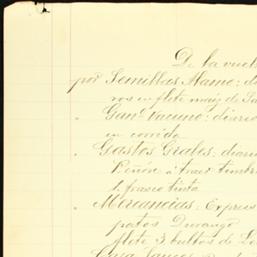 De la vuelt
por Semillas Alamo: d
ros en flete maiz de Sa
" Gano. Vacuno: diario
en corrida
" Gastos Grales. diari
Peñon a traer timbr
1. frasco tinta
" Mercancias. Expres
patos Durango
flete 3 bultos de Lo